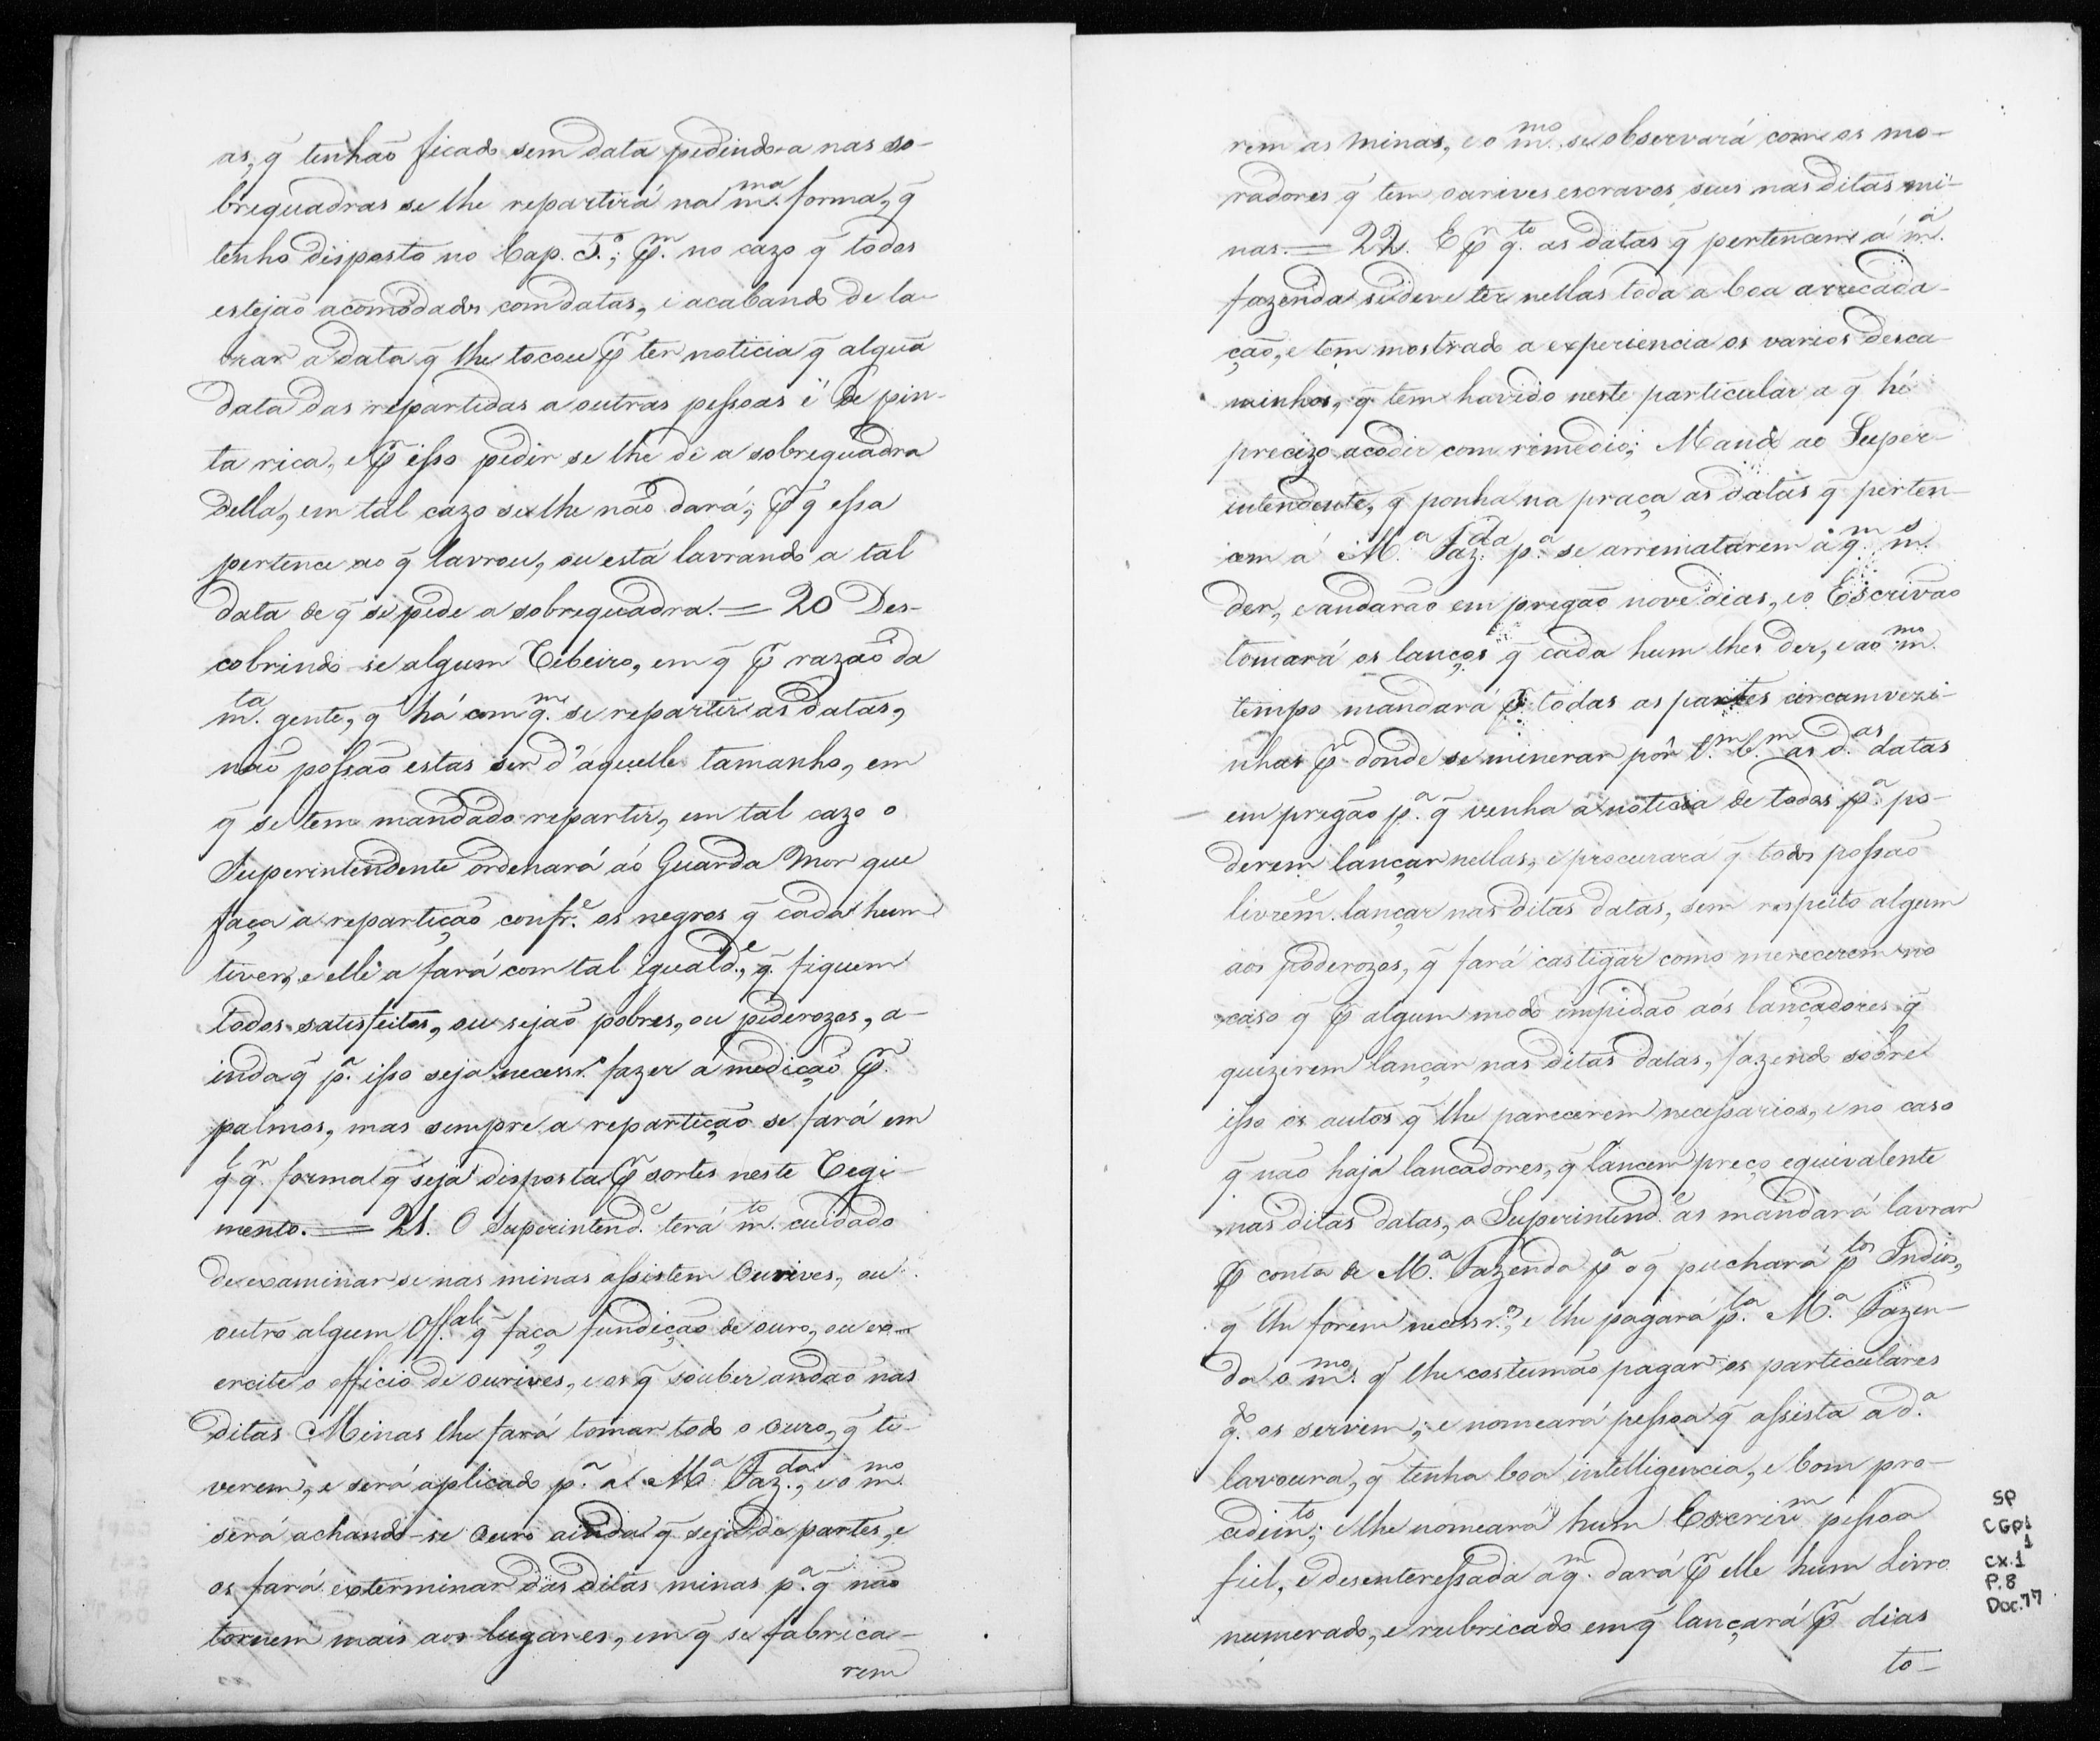 as, q̃ tenhão ficado sem data pedindo-a nas so-
brequadras se lhe repartirá na m.ma forma, q̃
tenho disposto no Cap. 5.º; p.m no cazo q̃ todos
estejão acomodados com datas, e acabando de la-
vrar a data q̃ lhe tocou p.r ter noticia q̃ alguã
data das repartidas a outras peſsoas é de pin-
ta rica, e p.r iſso pedir se lhe dê a sobrequadra
della, em tal cazo se lhe não dará; p.r q̃ eſsa
pertence ao q̃ lavrou, ou está lavrando a tal
data de q̃ se pede a sobrequadra. = 20 Des-
cobrindo-se algum Ribeiro, em q̃ p.r razão da
m.ta gente, q̃ há com q.m se repartir as datas,
não poſsão estas ser d'aquelle tamanho, em
q̃ se tem mandado repartir, em tal cazo o
Superintendente ordenará ao Guarda Mor que
faça a repartição confr.e os negros q̃ cada hum
tiver, e elle a fará com tal iguald.e, q̃ fiquem
todos satisfeitos, ou sejão pobres, ou poderozos, a-
inda q̃ p.a iſso seja necessr.o fazer a medição p.r
palmos, mas sempre a repartição se fará em
q.l q.r forma q̃ seja disposta p.r sortes neste Regi-
mento. = 21. O Superintend.e terá m.to cuidado
de examinar se nas minas aſsistem Ourives, ou
outro algum Off.al q̃ faça fundição de ouro, ou ex-
ercite o officio de ourives, e os q̃ souber andão nas
ditas Minas lhe fará tomar todo o ouro, q̃ ti-
verem, e será aplicado p.a a M.a Faz.da, e o m.mo
será achando-se ouro ainda q̃ seja de partes, e
os fará exterminar das ditas minas p.a q̃ não
tornem mais aos lugares, em q̃ se fabrica-
rem
rem as minas, e o m.mo se observará com os mo-
radores q̃ tem ourives escravos seus nas ditas mi-
nas. = 22. E p.r q.to as datas q̃ pertencem á m.a
fazenda se deve ter nellas toda a boa arrecada-
ção, e tem mostrado a experiencia os varios desca-
minhos, q̃ tem havido neste particular a q̃ hé
precizo acodir com remedio; Mando ao Super-
intendente, q̃ ponha na praça as datas q̃ perten-
cem á M.a Faz.da p.a se arrematarem a q.m m.s
der, e andarão em pregão nove dias, e o Escrivão
tomará os lanços q̃ cada hum lhes der, e ao m.mo
tempo mandará p.r todas as partes circumvezi-
nhas p.r donde se minerar pôr t.m b.m as d.as datas
em pregão p.a q̃ venha á noticia de todos p.a po-
derem lançar nellas, e procurará q̃ todos poſsão
livrem.e lançar nas ditas datas, sem respeito algum
aos poderozos, q̃ fará castigar como merecerem no
caso q̃ p.r algum modo impidão aos lançadores q̃
quizerem lançar nas ditas datas, fazendo sobre
iſso os autos q̃ lhe parecerem neceſsarios, e no caso
q̃ não haja lancadores, q̃ lancem preço equivalente
nas ditas datas, o Superintend.e as mandará lavrar
p.r conta de M.a Fazenda p.a o q̃ puchará p.los Indios,
q̃ lhe forem necessr.os, e lhe pagará p.la M.a Fazen-
da o m.mo q̃ lhe costumão pagar os particulares
q.do os servem; e nomeará peſsoa q̃ aſsista a d.a
lavoura, q̃ tenha boa intelligencia, e bom pro-
cedim.to; e lhe nomeará hum Escriv.m peſsoa
fiel, e desentereſsada a q.m dará p.r elle hum Livro
numerado, e rubricado em q̃ lançará p.r dias
to-
SP
CGP1
1
cx.1
P.8
Doc.77